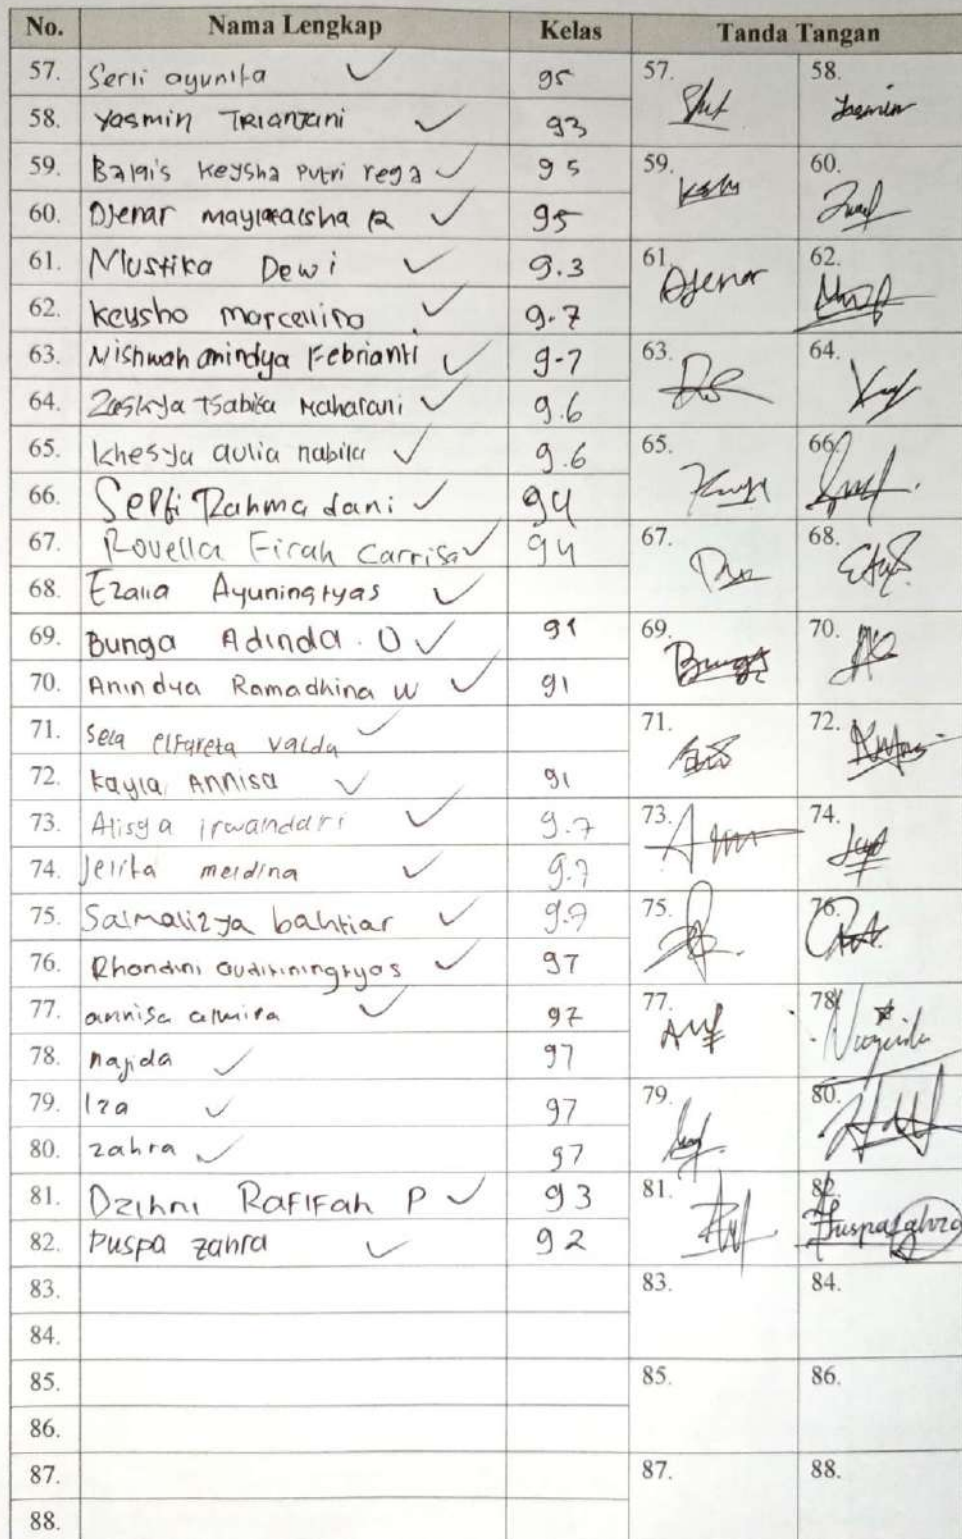 No. Nama Lengkap Kelas Tanda Tangan
57. Serli ayunita 95 57. 58.
58. Yasmin TRIANJANI 93 Yasmin
59. Balqis Keysha Putri rega 95 59. 60.
60. Djenar R 95
61. Mustika Dewi 9.3 61. Djenar 62.
62. Keysho marcellino 9.7
63. Nishwah anindya Febrianti 9-7 63. 64.
64. Zaskya Tsabita Maharani 9.6
65. Khesya aulia nabila 9.6 65. 66.
66. Serfi Rahma dani 94
67. Rovella Firah Carrisa 94 67. 68.
68. Ezalia Ayuningtyas
69. Bunga Adinda. U 91 69. Bunga 70.
70. Anindya Ramadhina W 91
71. Sela elfareta valda 71. 72.
72. Kayla Annisa 91
73. Alisya irwandari 9.7 73. 74.
74. Jelita meidina 9.7
75. Salmalizya bahtiar 9.7 75. 76.
76. Rhondini 97
77. annisa almira 97 77. 78.
78. najida 97
79. Iza 97 79. 80.
80. zahra 97
81. Dzihni RAFIFah P 93 81. 82.
82. Puspa zahra 92 Puspa Zahra
83. 83. 84.
84.
85. 85. 86.
86.
87. 87. 88.
88.